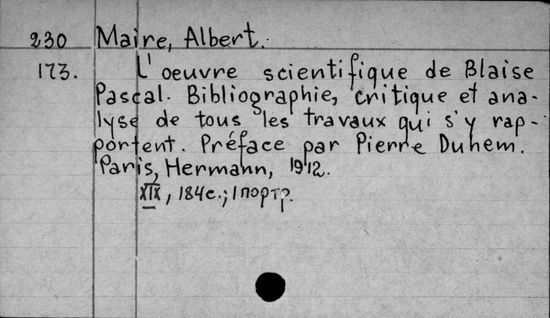 230 Maire, Albert.
173. L'oeuvre scientifique de Blaise
Pascal. Bibliographie, critique et ana-
lyse de tous les travaux qui s'y rap-
portent. Préface par Pierre Duhem.
Paris, Hermann, 1912.
XIX, 184c.; 1 портр.